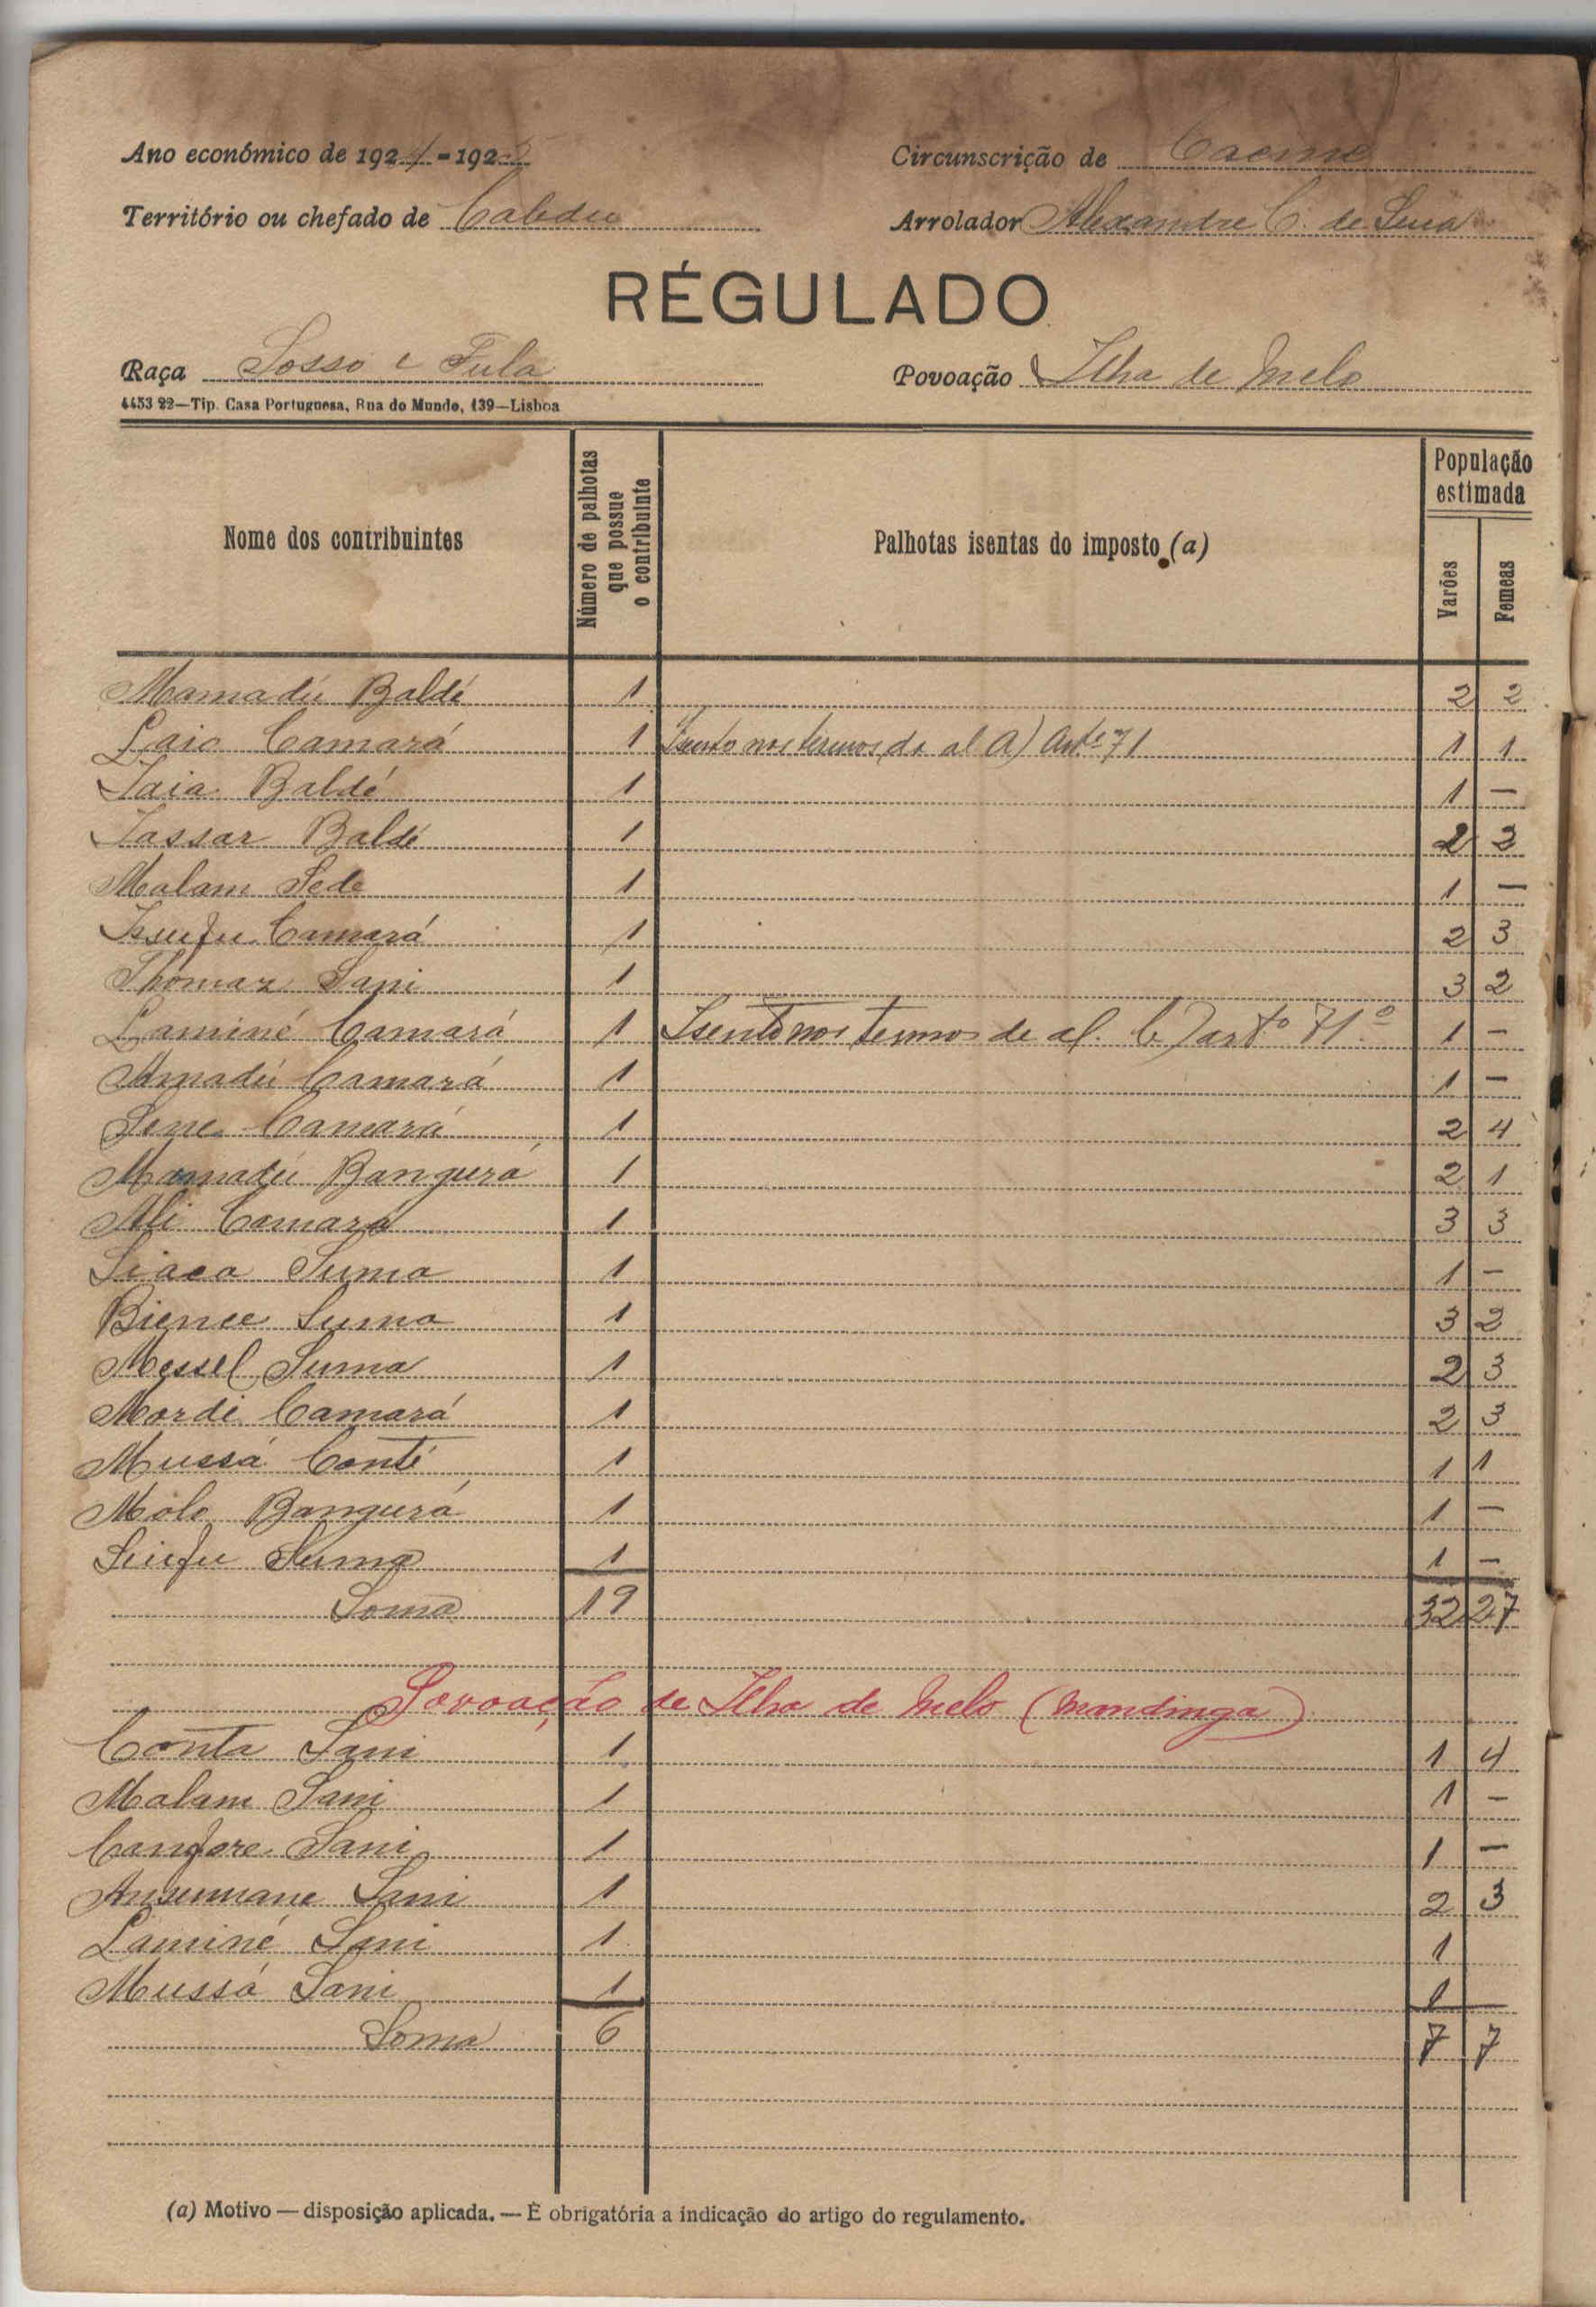 Ano económico de 1924-192
Circunscrição de Cacine
Território ou chefado de Cabedu
Arrolador Alexandre C. de
RÉGULADO
Raça Sosso e Fula
Povoação Ilha de Melo
4453 22—Tip. Casa Portuguesa, Rua do Mundo, 139—Lisboa
Nome dos contribuintes
Número de palhotas que possue o contribuinte
Palhotas isentas do imposto (a)
População estimada
Varões
Femeas
Mamadú Baldé 1 2 2
Laio Camará 1 Isento nos termos da al A) Artº 71 1 1
Baldé 1 1 —
Baldé 1 2 3
Malam Sede 1 1 —
Issufu Camará 1 2 3
Thomaz Sani 1 3 2
Laminé Camará 1 Isento nos termos de al. b) artº 71º 1 —
Amadú Camará 1 1 —
Sene Camará 1 2 4
Mamadú Bangurá 1 2 1
Ali Camará 1 3 3
Siaca Suma 1 1 —
Suma 1 3 2
Messel Suma 1 2 3
Mordi Camará 1 2 3
Mussá Conté 1 1 1
Molo Bangurá 1 1 —
Suifu Suma 1 1 —
Soma 19 32 27
Povoação de Ilha de Melo (Mandinga)
Conta Sani 1 1 4
Malam Sani 1 1 —
Canfore Sani 1 1 —
Ansumane Sani 1 2 3
Laminé Sani 1 1
Mussá Sani 1 1
Soma 6 7 7
(a) Motivo — disposição aplicada. — É obrigatória a indicação do artigo do regulamento.